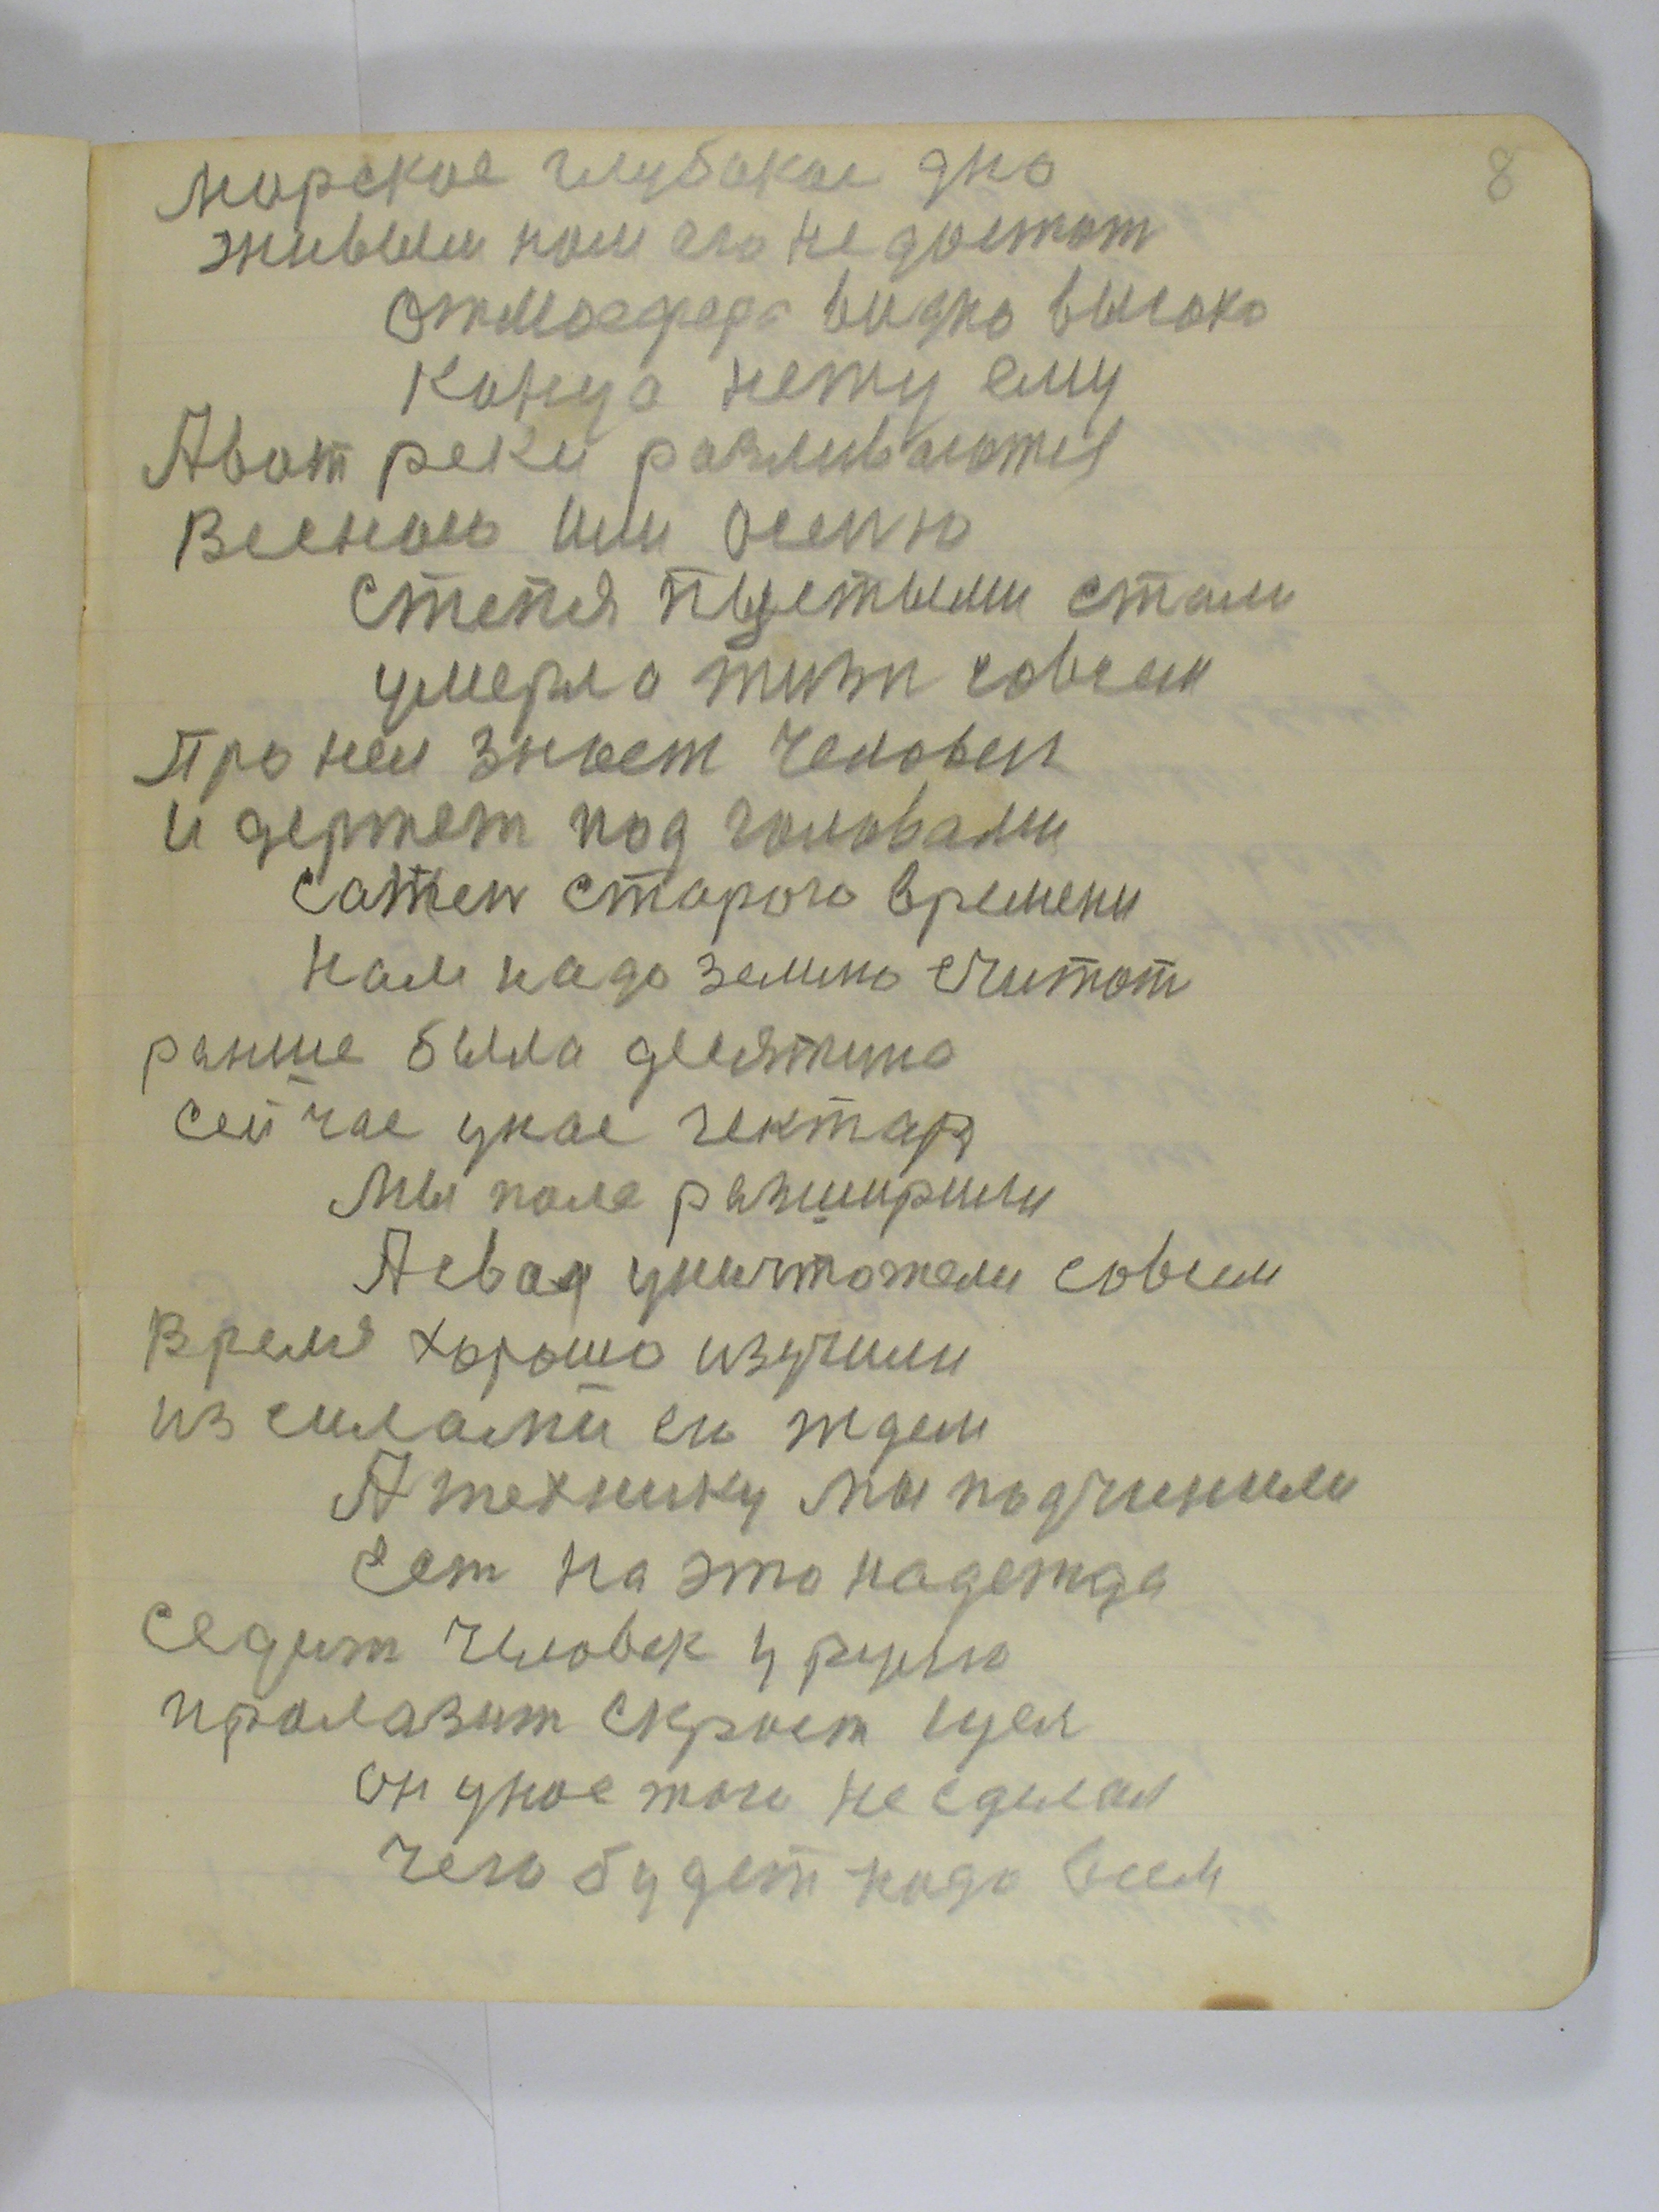 8
Морское глубокое дно
живым нам его не достат
Отмосфера видно высоко
Конца нету ему
Авот реки разливаются
Весною или осеню
степя пустыми стали
умерла жизн совсем
Про нея знает человек
и держет под головами
сажен старого времени
Нам надо землю считат
ранше была десятина
сейчас у нас гектар
Мы поле разширили
А свая уничтожели совсем
Время хорошо изучили
из силами его ждем
А технику мы подчинили
Ест на это надежда
Седит человек у руля
пролазит скрост щел
он у нас того не сделал
чего будет надо всем